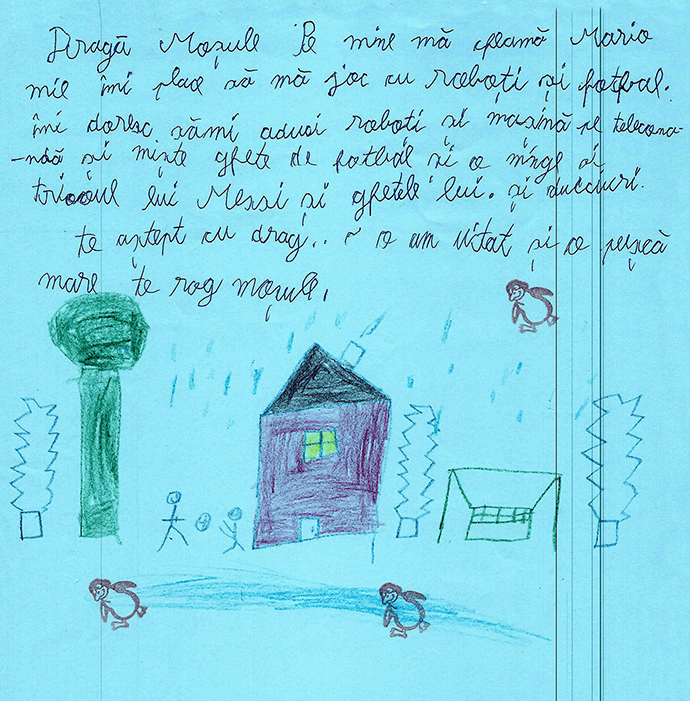 Dragă Moșule Pe mine mă cheamă Mario
mie îmi place să mă joc cu roboți și fotbal.
îmi doresc sămi aduci roboți și mașină pe telecoma-
-ndă și miște ghete de fotbal și o minge și
tricoul lui Messi și ghetele lui. și dulciuri.
te aștept cu drag.. ~ o am uitat și o pușcă
mare te rog moșule.